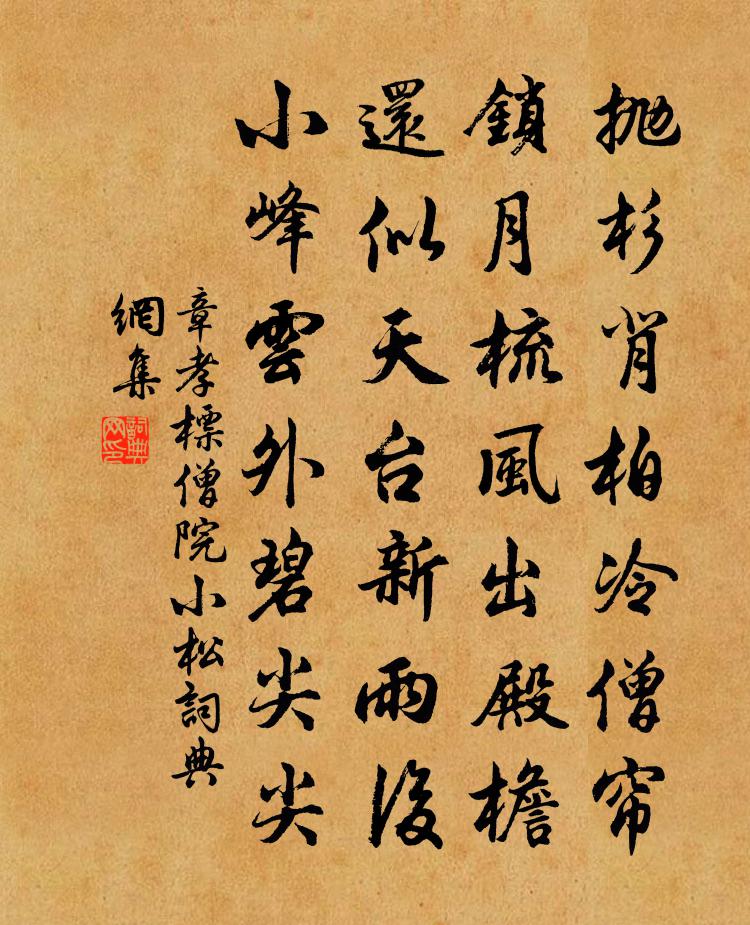 拋杉背柏冷僧帘
鎖月梳風出殿檐
還似天台新雨後
小峰雲外碧尖尖
章孝標僧院小松詞典
網集
詞典
网印